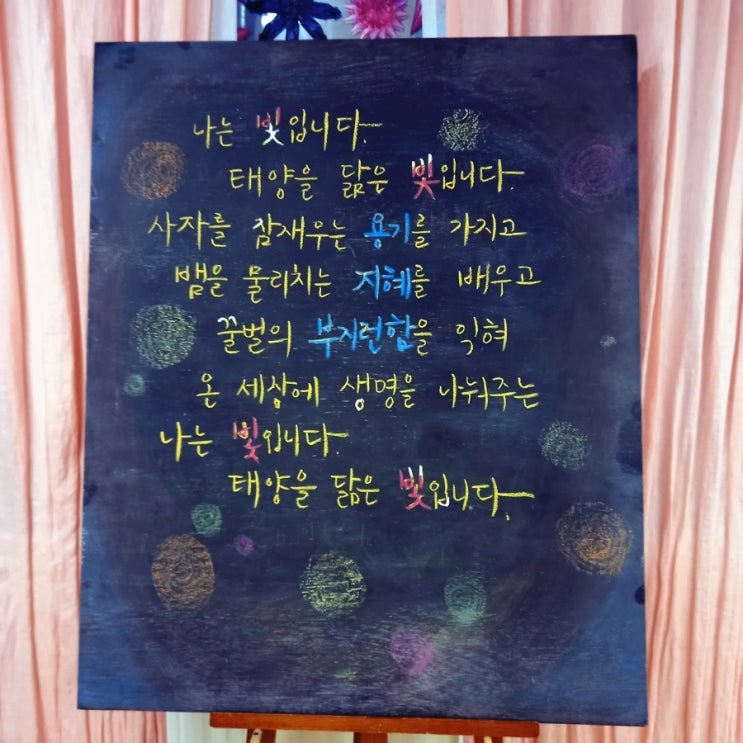 나는 빛입니다.
태양을 닮은 빛입니다.
사자를 잠재우는 용기를 가지고
뱀을 물리치는 지혜를 배우고
꿀벌의 부지런함을 익혀
온 세상에 생명을 나눠주는
나는 빛입니다.
태양을 닮은 빛입니다.